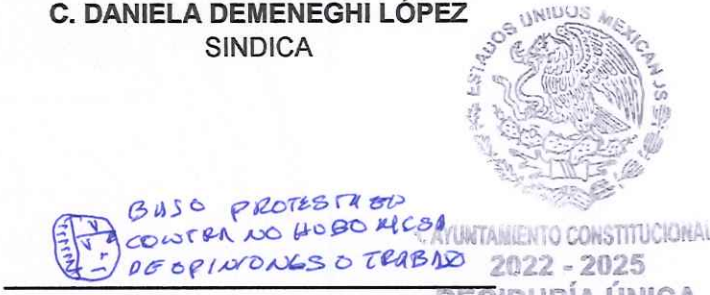 C. DANIELA DEMENEGHI LÓPEZ
SINDICA
ESTADOS UNIDOS MEXICANOS
BAJO PROTESTA EN
CONTRA NO HUBO MESA
DE OPINIONES O TRABAJO
AYUNTAMIENTO CONSTITUCIONAL
2022 - 2025
REGIDURÍA ÚNICA